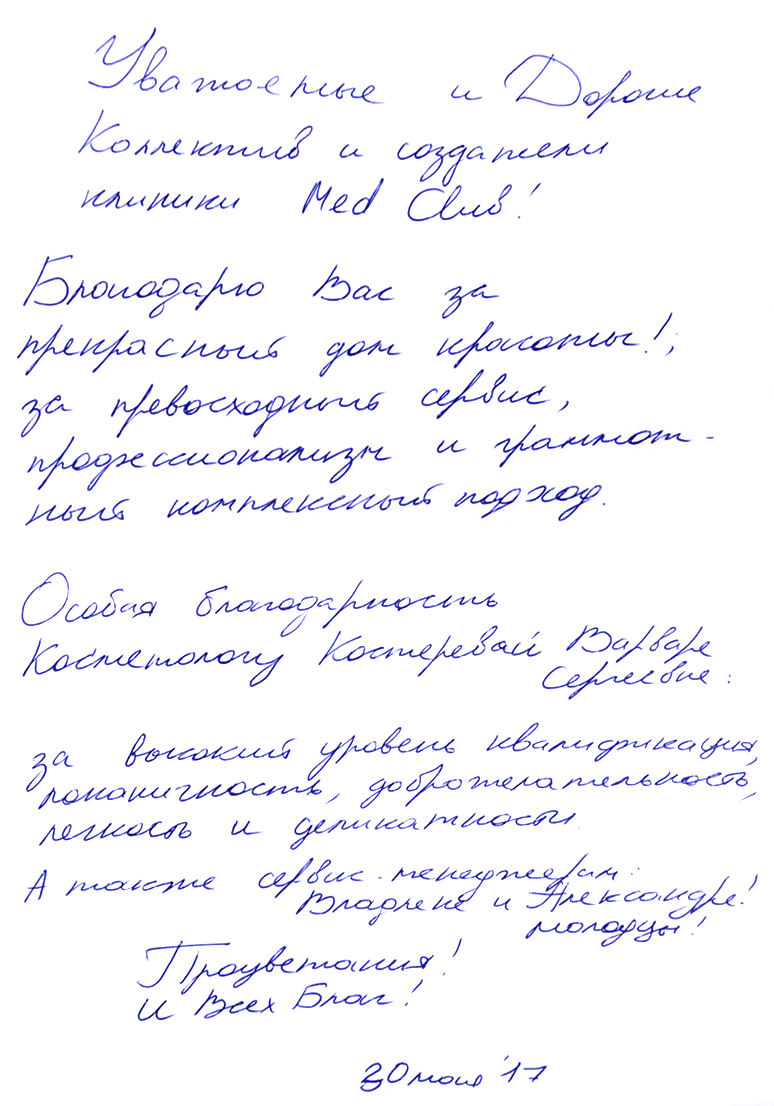 Уважаемые и Дорогие
Коллектив и создатели
клиники Med Club!
Благодарю Вас за
прекрасный дом красоты!,
за превосходный сервис,
профессионализм и грамот-
ный комплексный подход.
Особая благодарность
Косметологу Костеревой Варваре
Сергеевне:
за высокий уровень квалификация,
лаконичность, доброжелательность,
легкость и деликатность.
А также сервис-менеджерам:
Владлене и Александре!
молодцы!
Процветания!
и Всех Благ!
30 мая '17